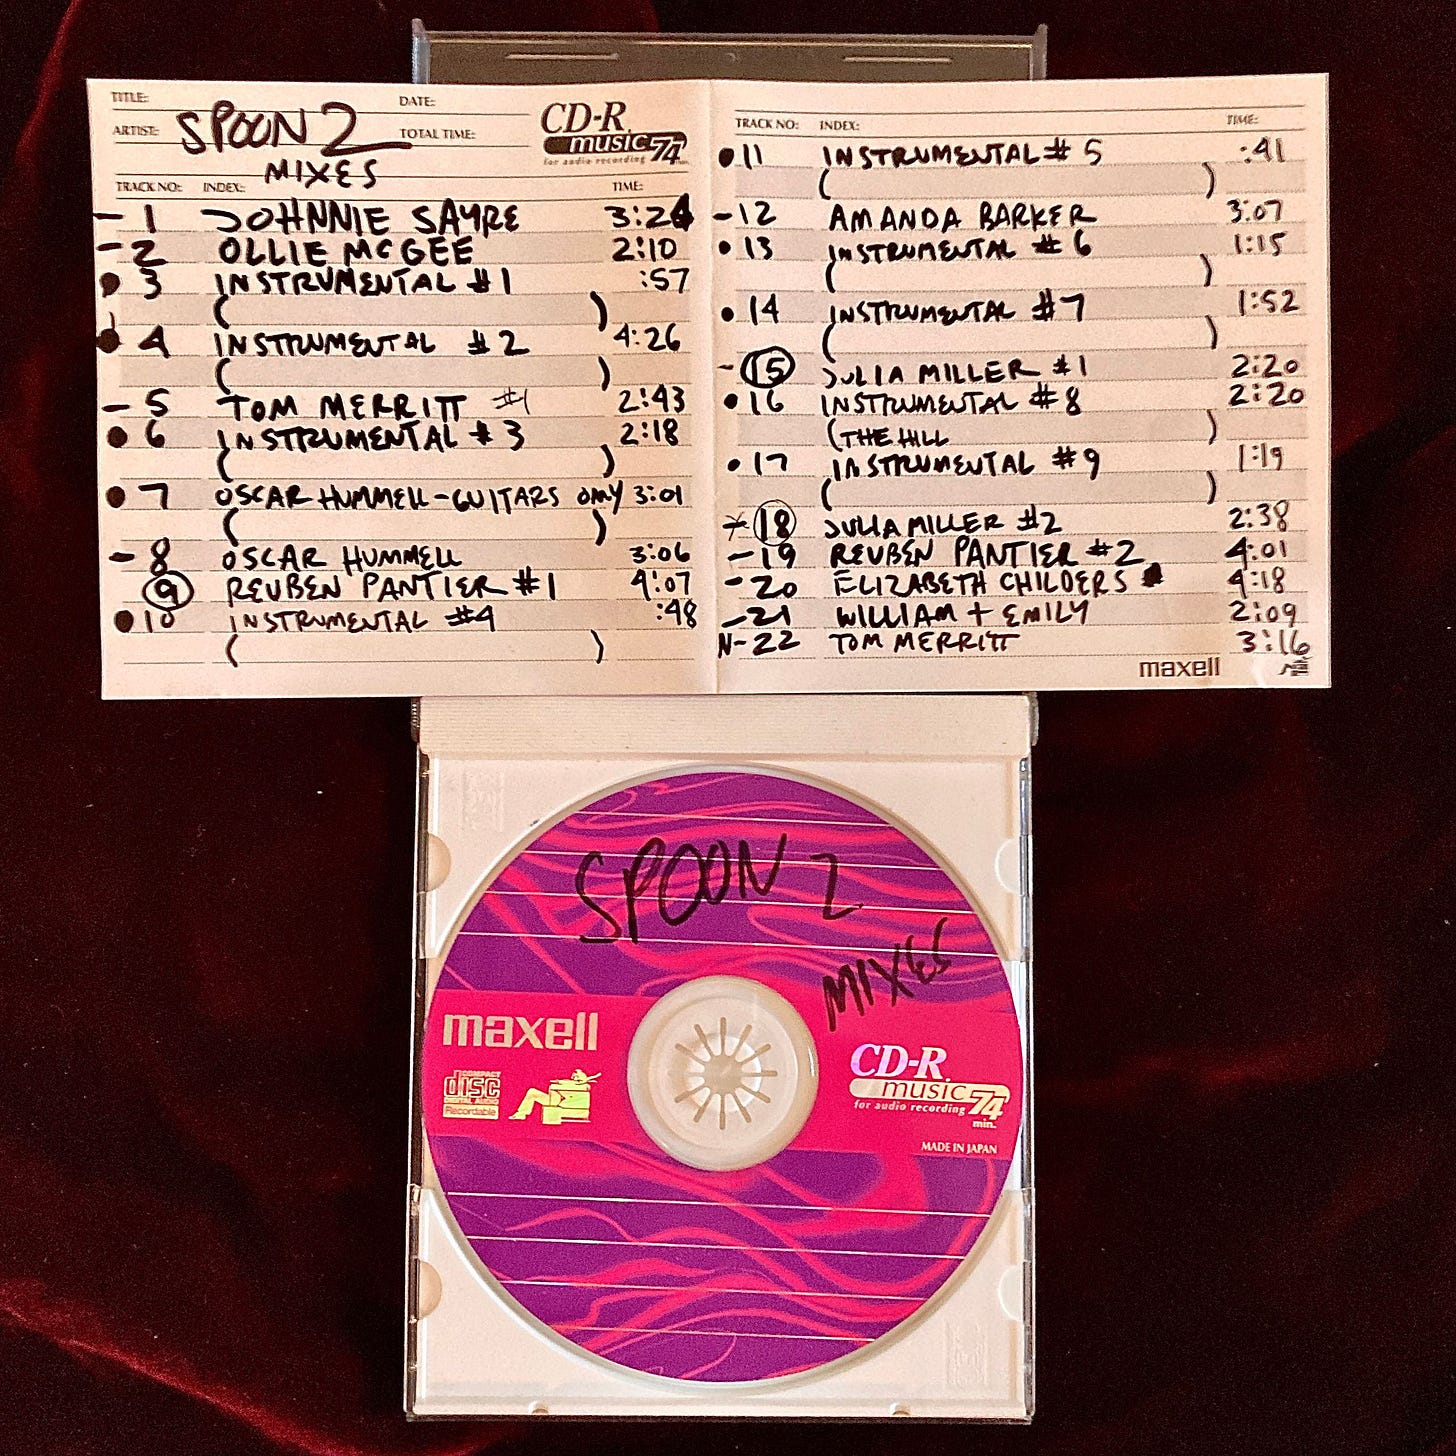 TITLE: DATE:
SPOON 2
ARTIST: TOTAL TIME:
MIXES
CD-R
music 74 min.
for audio recording
TRACK NO: INDEX: TIME:
– 1 JOHNNIE SAYRE 3:24
– 2 OLLIE MCGEE 2:10
• 3 INSTRUMENTAL #1 :57
( )
• 4 INSTRUMENTAL #2 4:26
( )
– 5 TOM MERRITT #1 2:43
• 6 INSTRUMENTAL #3 2:18
( )
• 7 OSCAR HUMMELL – GUITARS ONLY 3:01
( )
– 8 OSCAR HUMMELL 3:06
9 REUBEN PANTIER #1 4:07
• 10 INSTRUMENTAL #4 :48
( )
TRACK NO: INDEX: TIME:
• 11 INSTRUMENTAL # 5 :41
( )
– 12 AMANDA BARKER 3:07
• 13 INSTRUMENTAL # 6 1:15
( )
• 14 INSTRUMENTAL #7 1:52
( )
– 15 JULIA MILLER #1 2:20
• 16 INSTRUMENTAL #8 2:20
(THE HILL )
• 17 INSTRUMENTAL #9 1:19
( )
– 18 JULIA MILLER #2 2:38
– 19 REUBEN PANTIER #2 4:01
– 20 ELIZABETH CHILDERS 4:18
– 21 WILLIAM + EMILY 2:09
N– 22 TOM MERRITT 3:16
maxell
SPOON 2
MIXES
maxell
COMPACT
disc
DIGITAL AUDIO
Recordable
CD-R
music 74
for audio recording
min.
MADE IN JAPAN